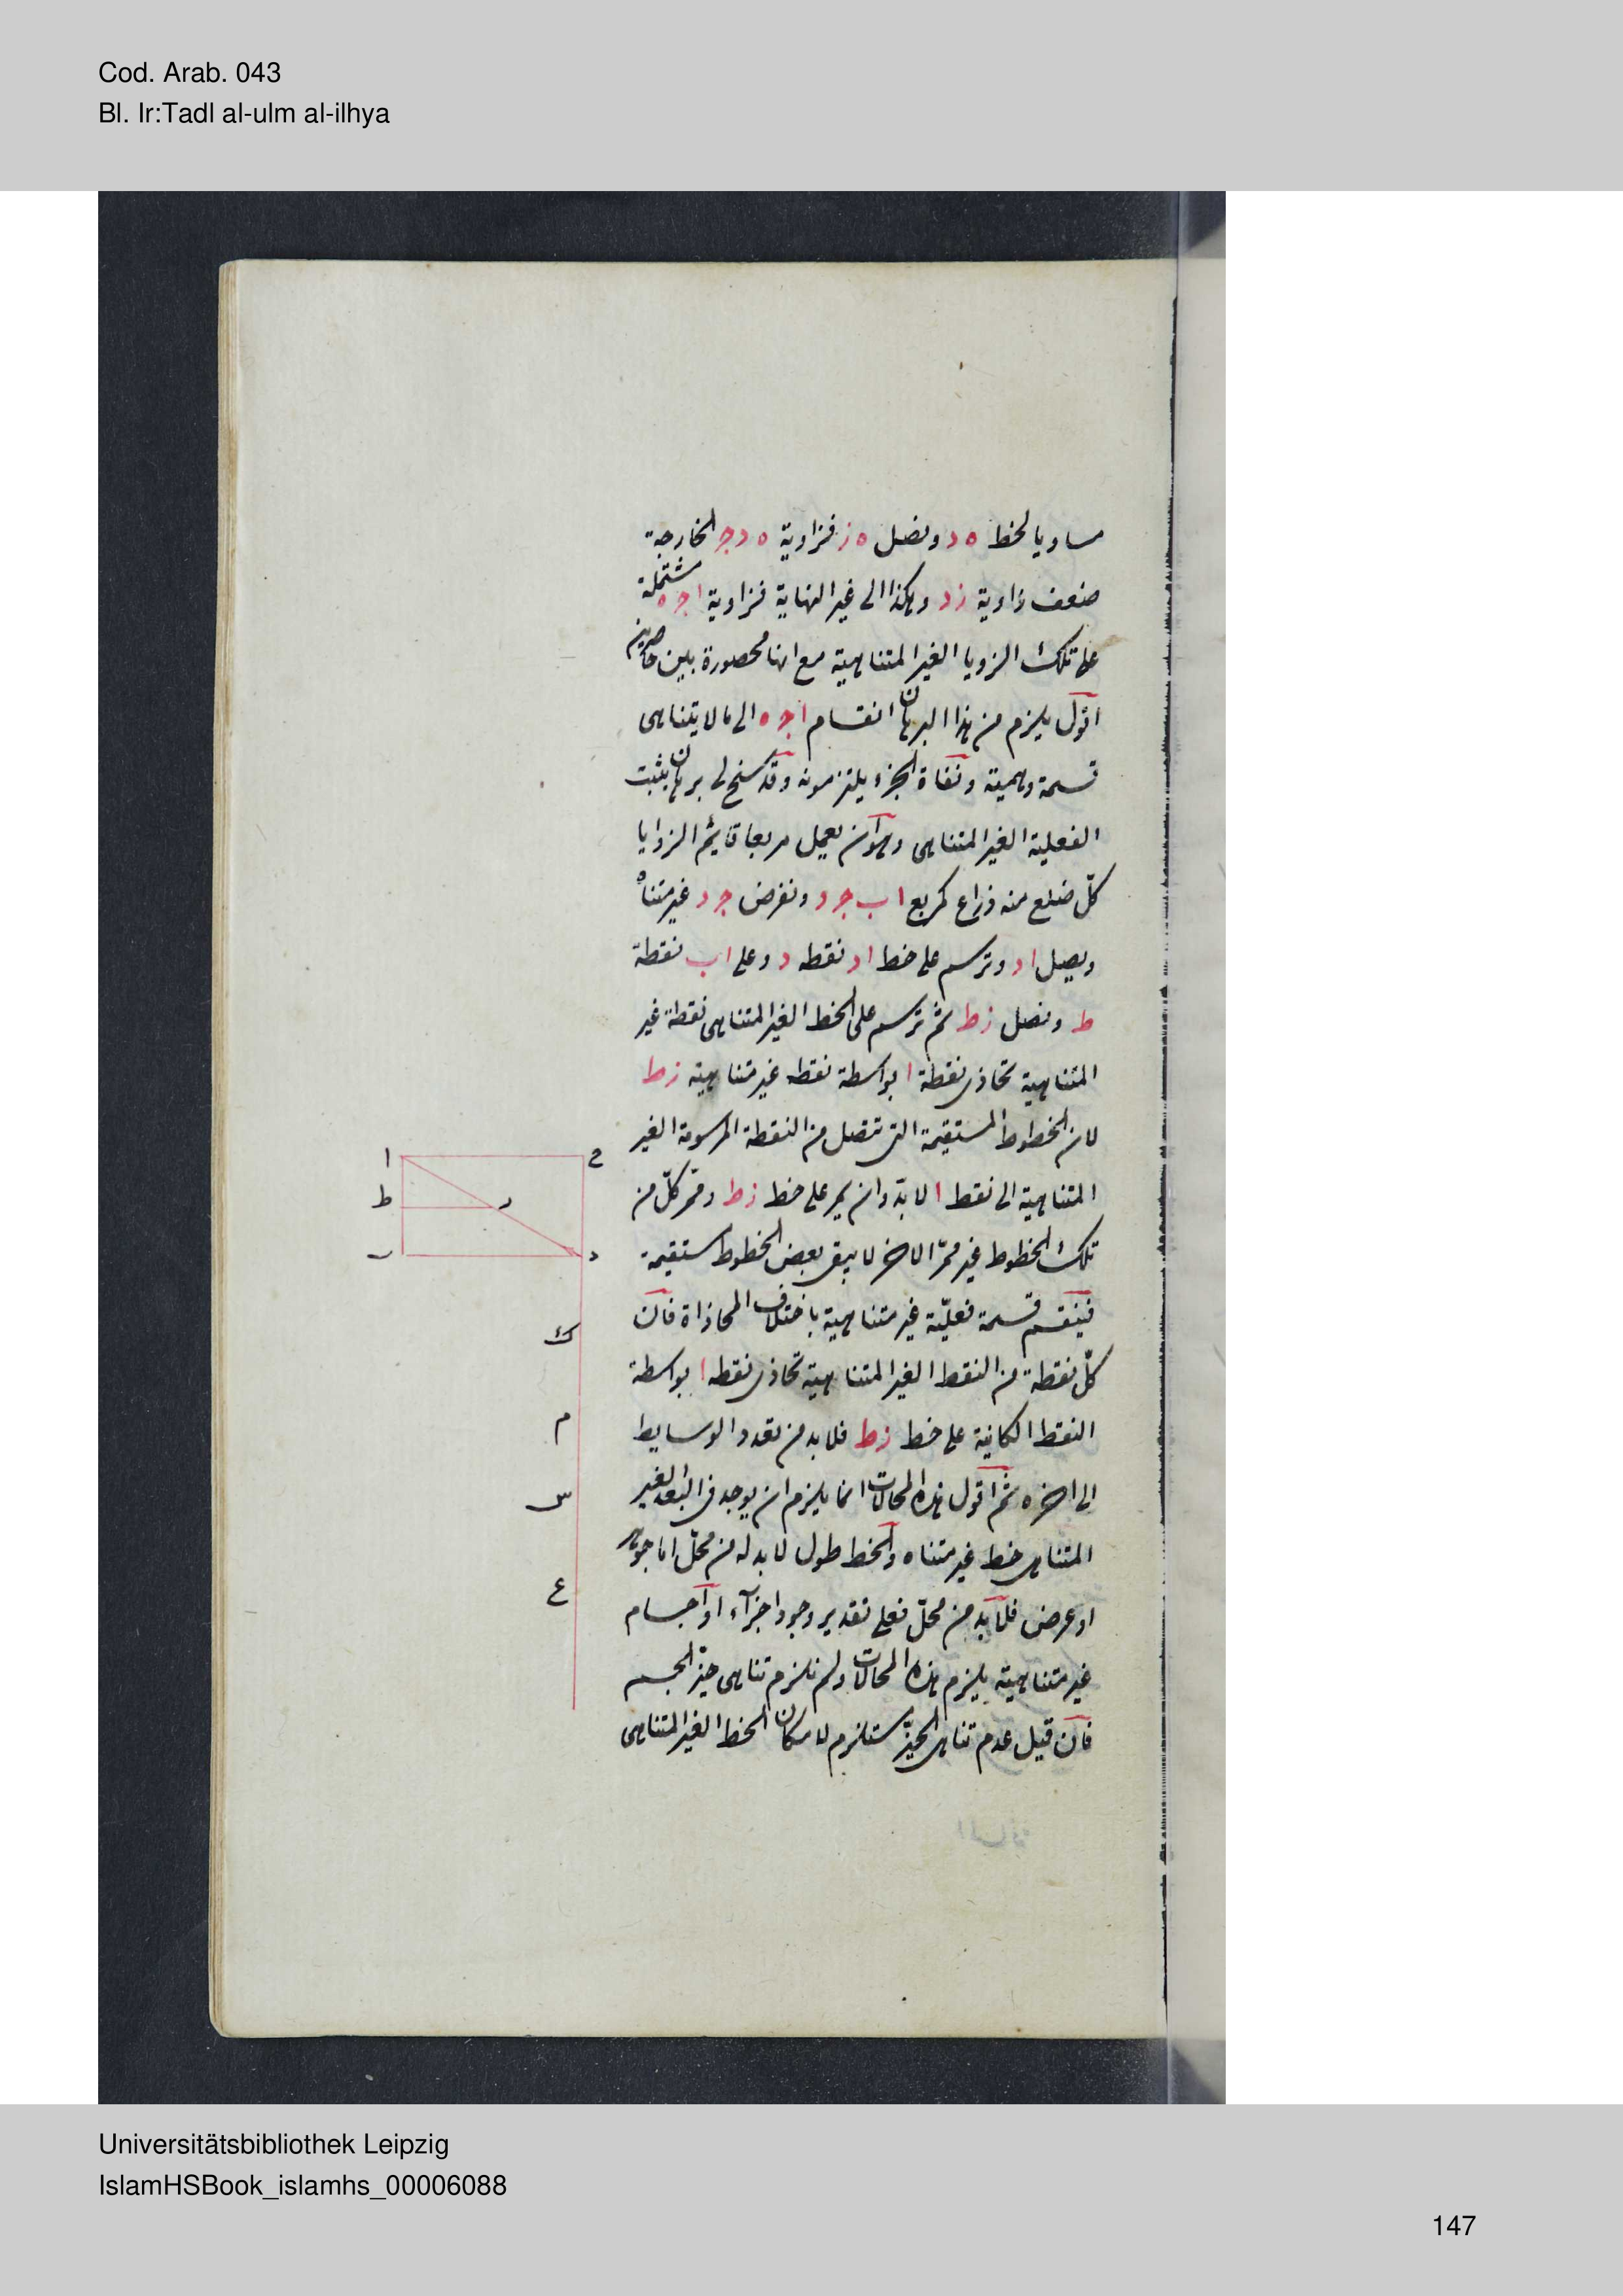 Cod. Arab. 043
Bl. Ir:Tadl al-ulm al-ilhya
مساويا لخط ه د ونصل ه ز فزاوية ه د جـ الخارجة
ضعف زاوية ز د وهكذا الى غير النهاية فزاوية ا جـ ه مشتملة
على تلك الزويا الغير المتناهية مع انها محصورة بين حاصرين
اقول يلزم من هذا البرهان انقسام ا جـ ه الى ما لا يتناهى
قسمة وهمية ونفاة الجزء يلتزمونه وقد سنح لى برهان يثبت
الفعلية الغير المتناهى وهو ان يعمل مربعا قايم الزوايا
كلّ ضلع منه ذراع كمربع ا ب جـ د ونفرض جـ د غير متناه
ويصل ا د وترسم على خط ا د نقطه د وعلى ا ب نقطة
ط ونصل زط ثم ترسم على الخط الغير المتناهى نقطة غير
المتناهية تحاذى نقطة ا بواسطة نقطه غير متناهية زط
لان الخطوط المستقيمة التى تتصل من النقطة المرسومة الغير
المتناهية الى نقط ا لا بد وان يمر على خط زط وممر كلّ من
تلك الخطوط غير ممرّ الاخر لا يبقى بعض الخطوط مستقيمة
فينقسم قسمة فعليّة غير متناهية باختلاف المحاذاة فان
كلّ نقطة من النقط الغير المتناهية تحاذى نقطه ا بواسطة
النقط الكاينة على خط زط فلا بد من تعدد الوسايط
الى اخره ثم اقول هذه المحالات انما يلزم ان يوجد فى البعد الغير
المتناهى خط غير متناه والخط طول لا بد له من محلّ اما جوهر
او عرض فلا بد من محلّ فعلى تقدير وجود اجزآء او اجسام
غير متناهية يلزم هذه المحالات ولم نلزم تناهى حيّز الجسم
فان قيل عدم تناهى الحيّز مستلزم لامكان الخط الغير المتناهى
ا
ح
ط
ر
ب
د
ك
م
س
ع
Universitätsbibliothek Leipzig
IslamHSBook_islamhs_00006088
147